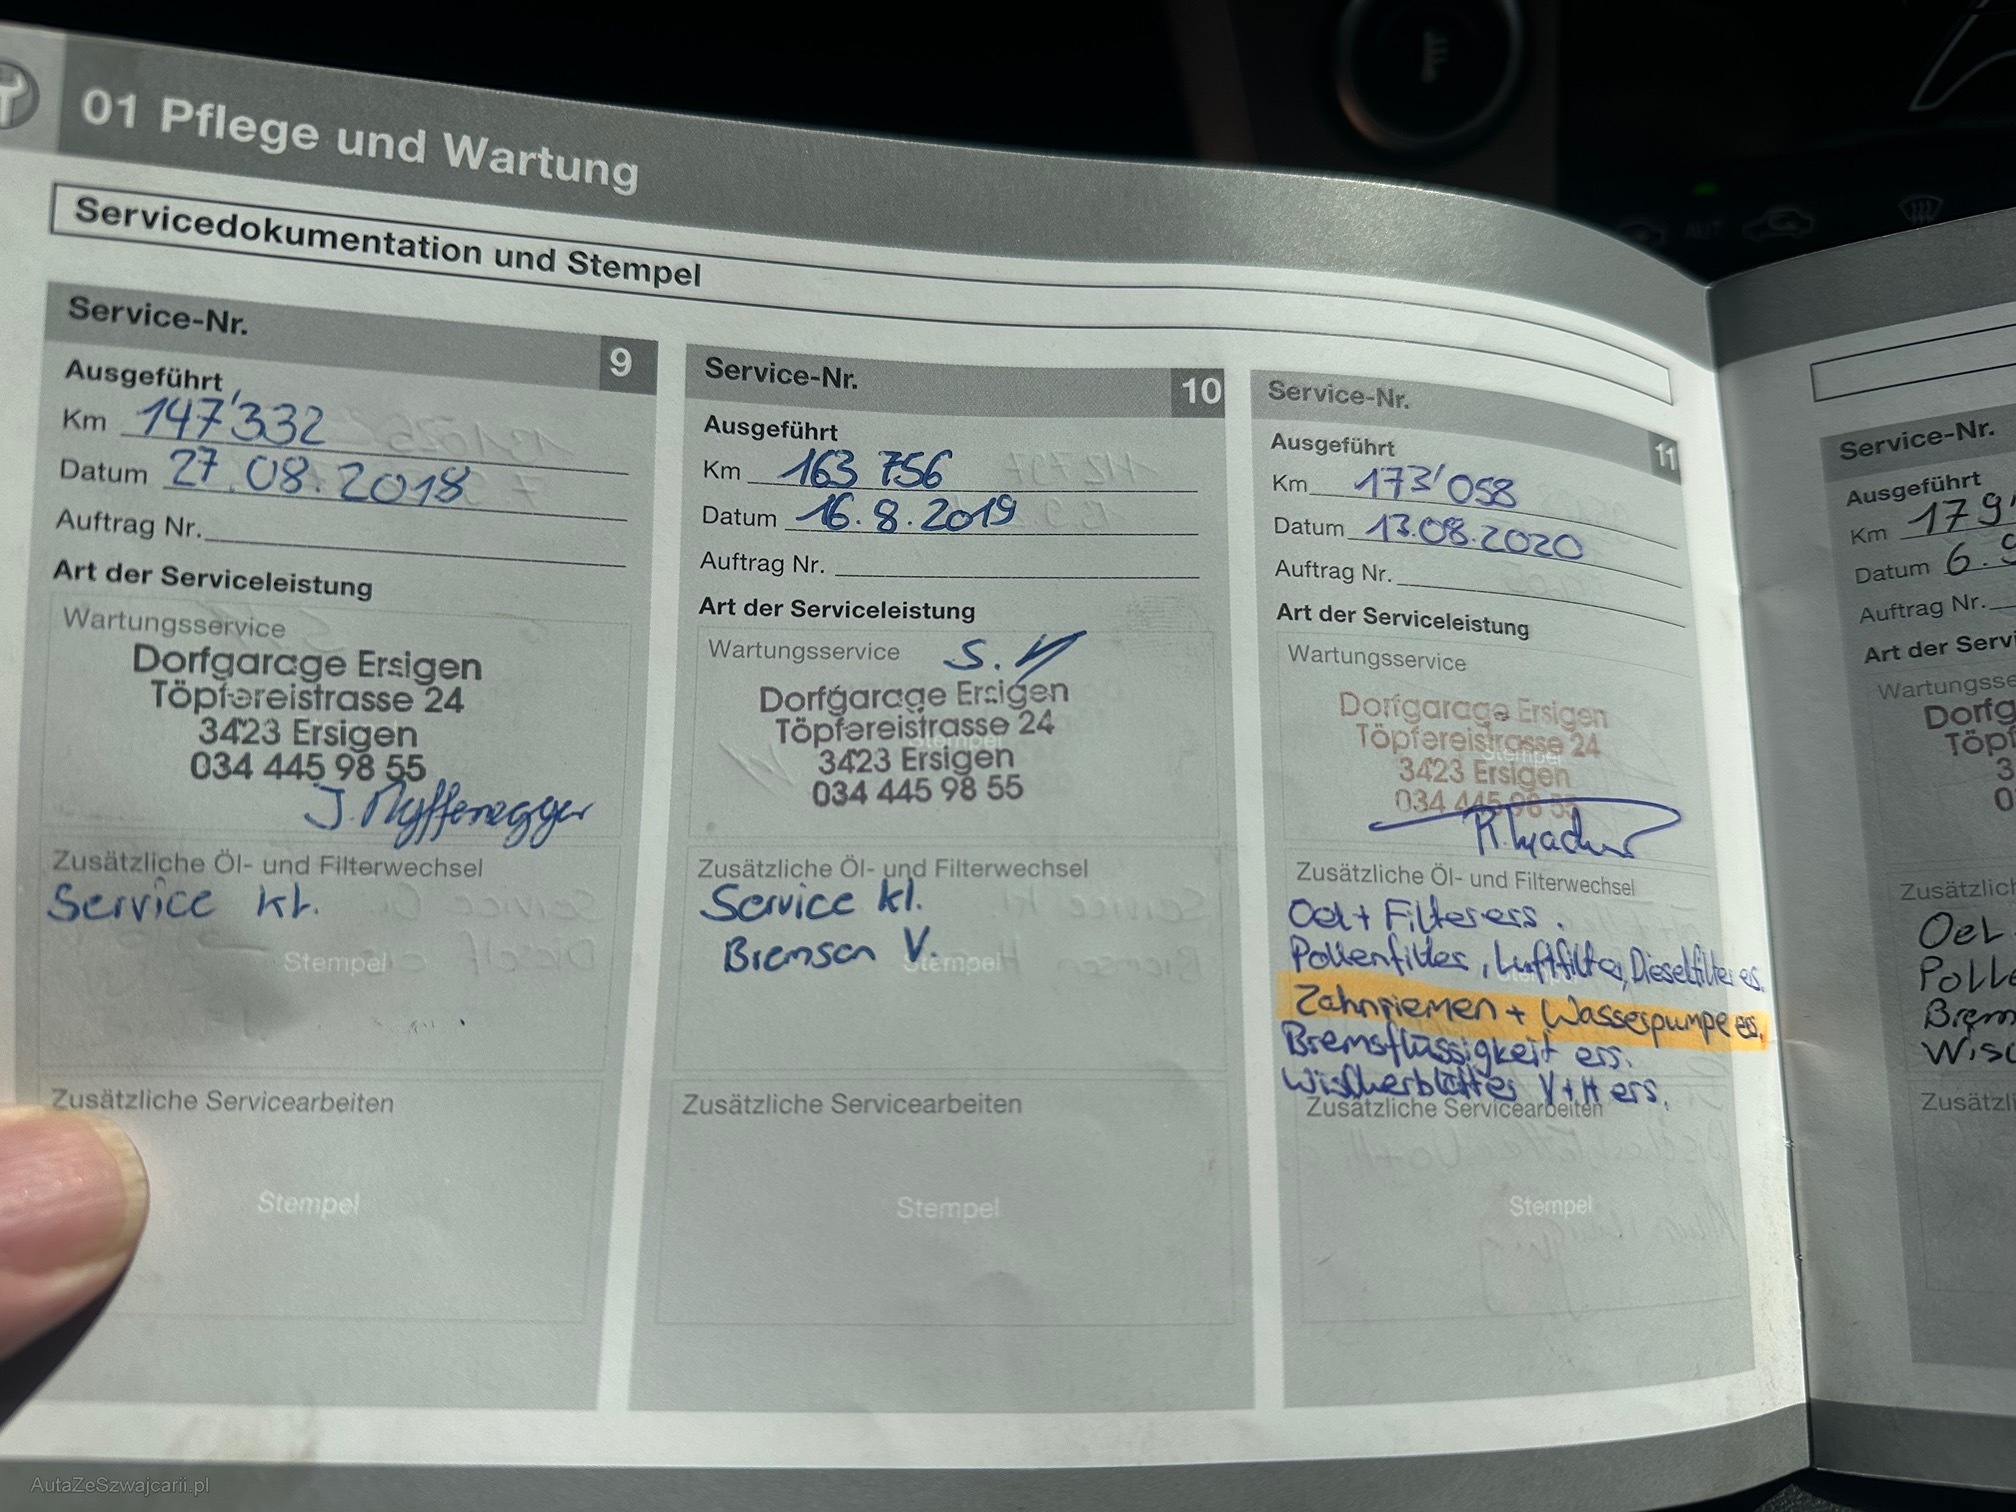 01 Pflege und Wartung
Servicedokumentation und Stempel
Service-Nr. 9
Ausgeführt
Km 147'332
Datum 27.08.2018
Auftrag Nr.
Art der Serviceleistung
Wartungsservice
Dorfgarage Ersigen
Töpfereistrasse 24
3423 Ersigen
034 445 98 55
J. Nyffenegger
Zusätzliche Öl- und Filterwechsel
Service kl.
Stempel
Zusätzliche Servicearbeiten
Stempel
Service-Nr. 10
Ausgeführt
Km 163 756
Datum 16.8.2019
Auftrag Nr.
Art der Serviceleistung
Wartungsservice
Dorfgarage Ersigen
Töpfereistrasse 24
3423 Ersigen
034 445 98 55
Zusätzliche Öl- und Filterwechsel
Service kl.
Bremsen V.
Stempel
Zusätzliche Servicearbeiten
Stempel
Service-Nr. 11
Ausgeführt
Km 173'058
Datum 13.08.2020
Auftrag Nr.
Art der Serviceleistung
Wartungsservice
Dorfgarage Ersigen
Töpfereistrasse 24
3423 Ersigen
034 445 98 55
Zusätzliche Öl- und Filterwechsel
Oel + Filter ers.
Pollenfilter, Luftfilter, Dieselfilter es.
Zahnriemen + Wasserpumpe es.
Bremsflüssigkeit ers.
Wischerblätter V+H ers.
Zusätzliche Servicearbeiten
Stempel
Service-Nr.
Ausgeführt
Km 179'
Datum 6.9
Auftrag Nr.
Art der Serv
Wartungsse
Dorfg
Töpf
3
0
Zusätzlich
Oel
Polle
Brem
Wisc
Zusätzli
AUT
AutaZeSzwajcarii.pl